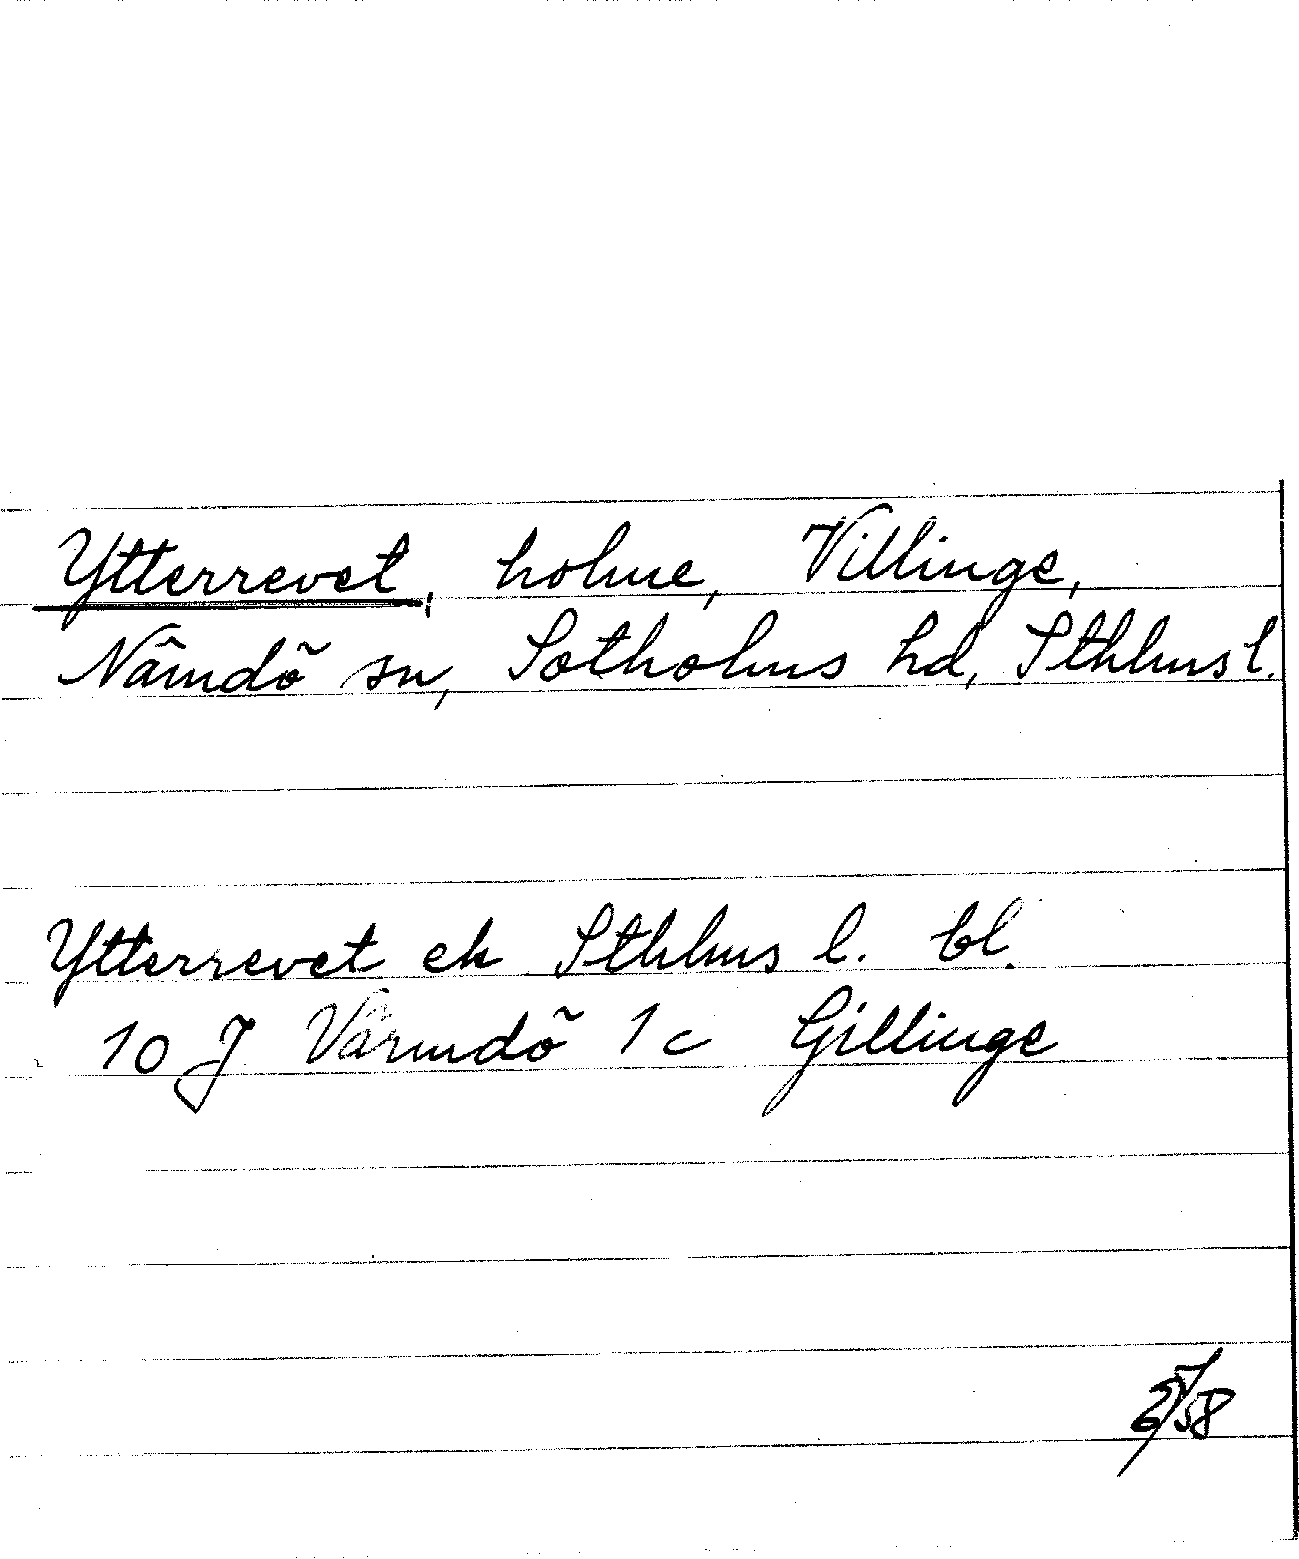 Ytterrevet, holme, Villinge,
Nämdö sn, Sotholms hd, Sthlms l.
Ytterrevet ek Sthlms l. bl.
10 J Värmdö 1 c Gillinge